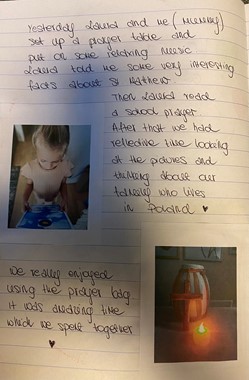 Yesterday Laura and me (Mummy)
set up a prayer table and
put on some relaxing music
Laura told me some very interesting
facts about St Matthew
Then Laura read
a school prayer.
After that we had
reflective time looking
at the pictures and
thinking about our
family who lives
in Poland ♥
We really enjoyed
using the prayer bag
it was amazing time
which we spent together
♥